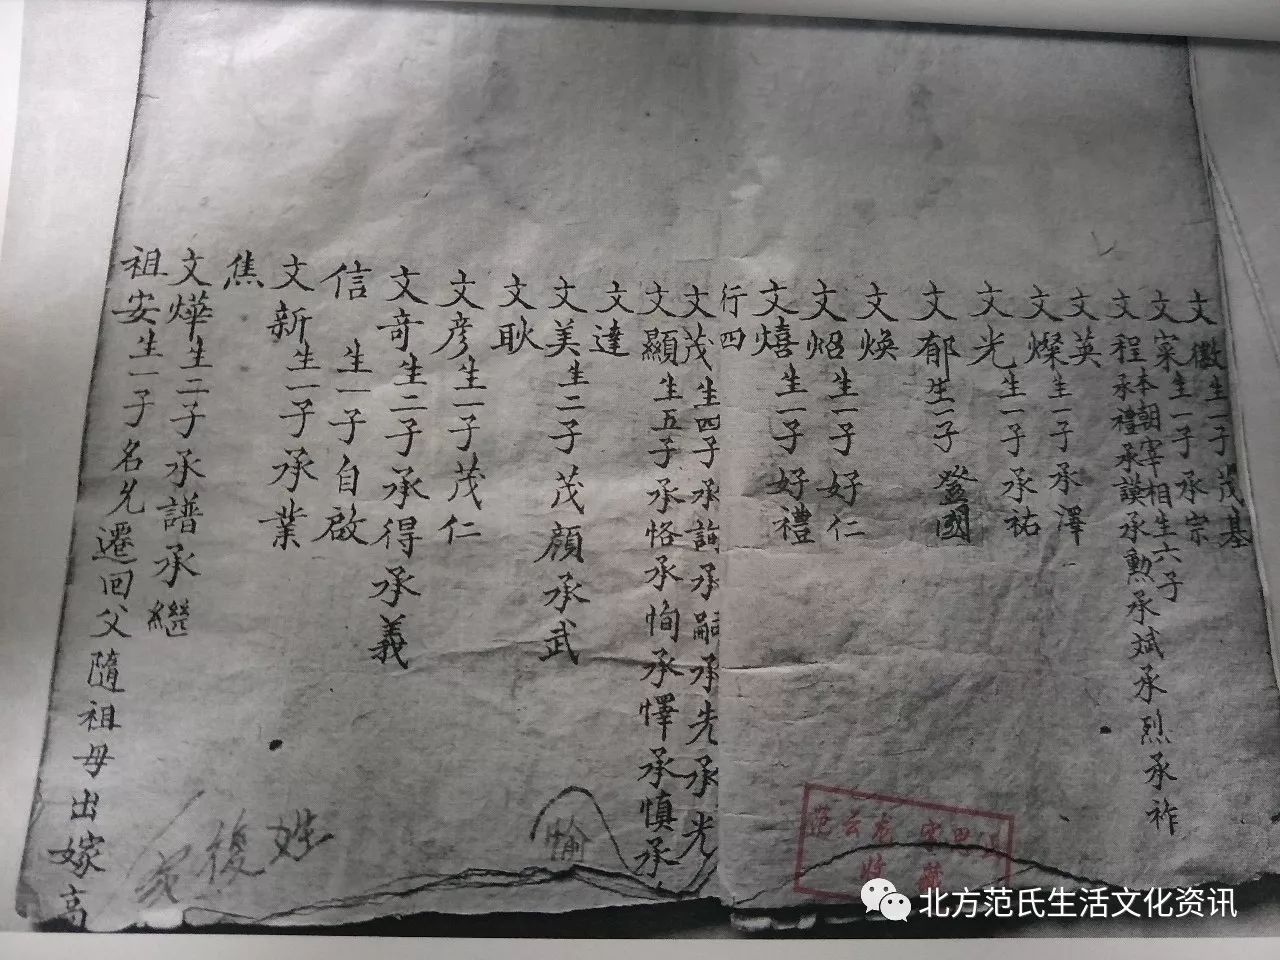 文徽生一子茂基
文寀生一子承宗
文程本朝宰相生六子
承禮承謨承勲承斌承烈承祚
文英
文燦生一子承澤
文光生一子承祐
文郁生一子登國
文焕
文炤生一子好仁
文熺生一子好禮
行四
文茂生四子承詢承嗣承先承光
文顯生五子承恪承恂承懌承慎承
愉
文達
文美生二子茂顔承武
文耿
文彦生一子茂仁
文奇生二子承得承義
信生一子自啟
文新生一子承業
焦
文燁生二子承譜承繼
祖安生一子名允遷回父隨祖母出嫁高
姓
後
范云龙
收藏
北方范氏生活文化资讯